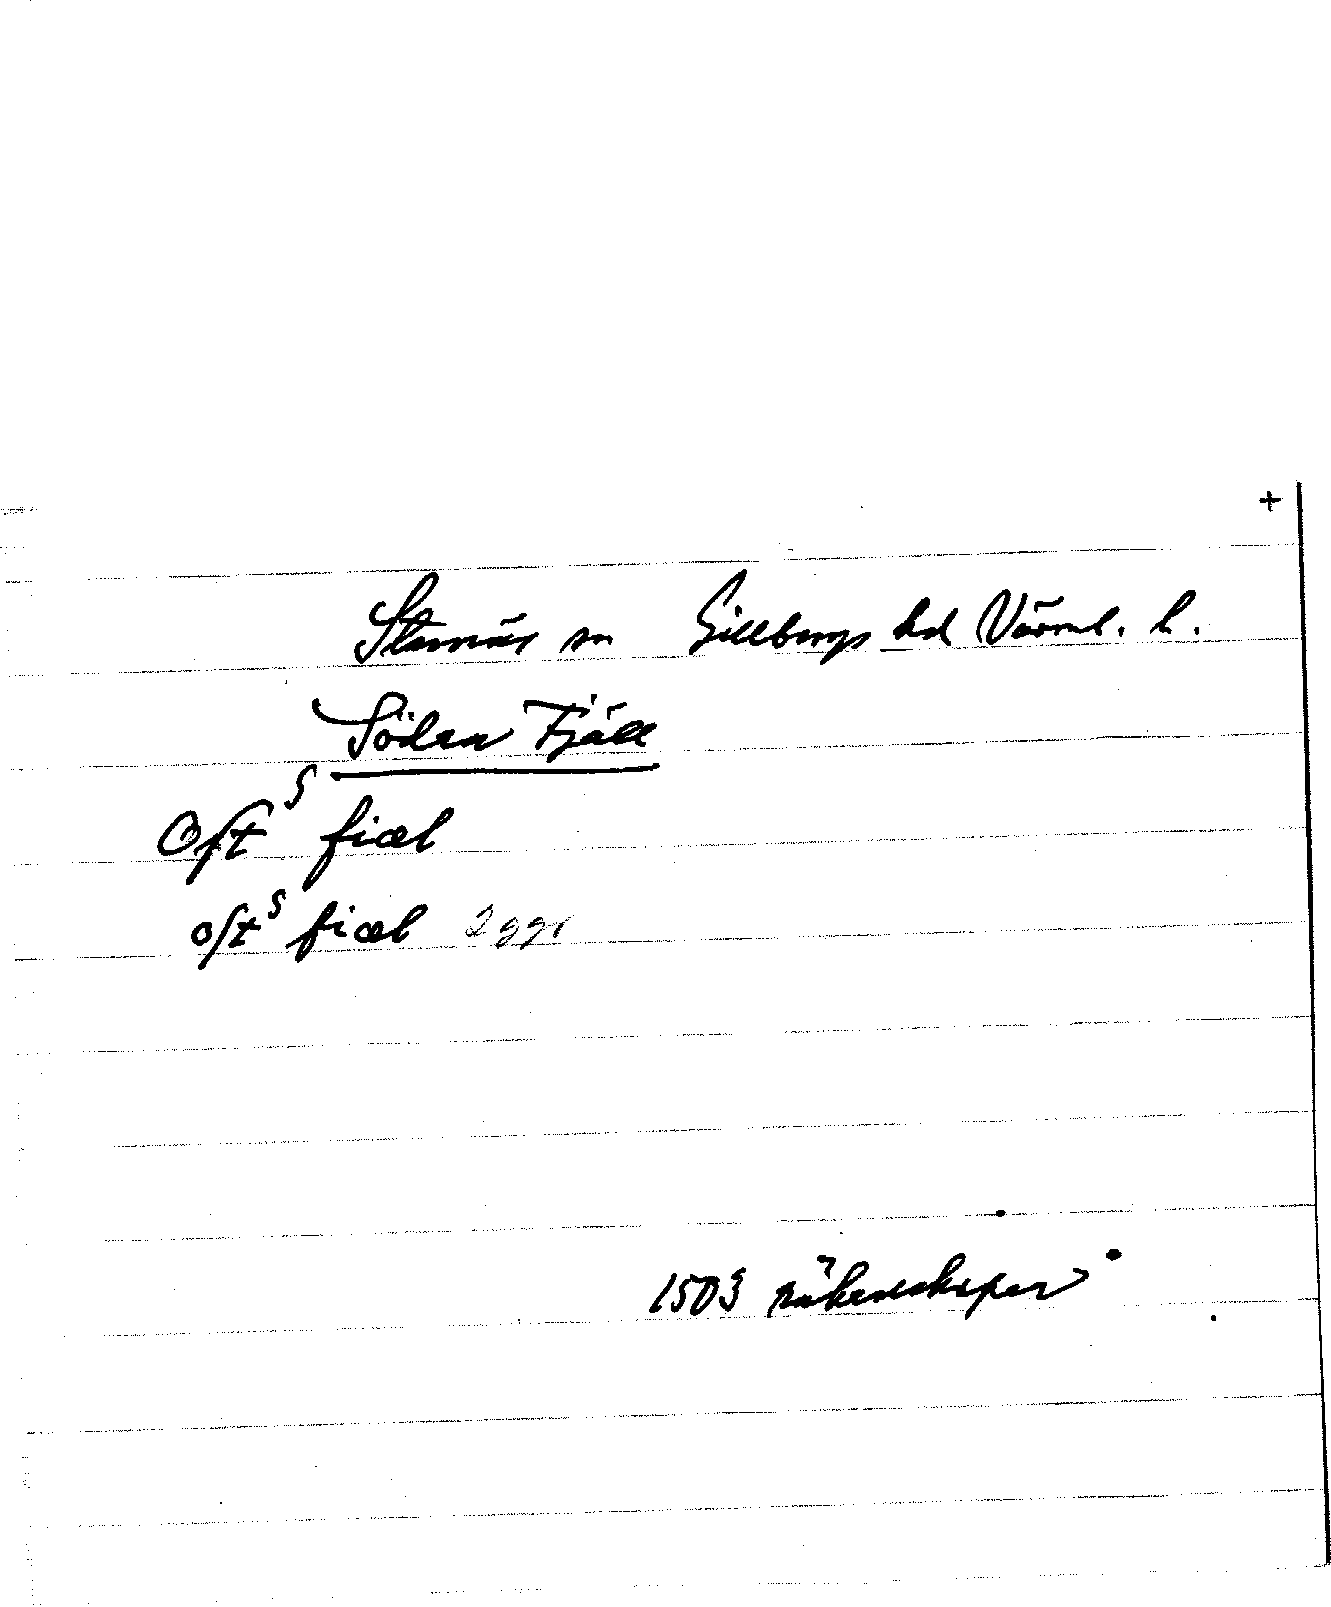 +
Stavnäs sn Gillbergs hd Värml. l.
Södra Fjäll
Oſt s fiæl
oſt s fiæl 2 ggr
1503 räkenskaper